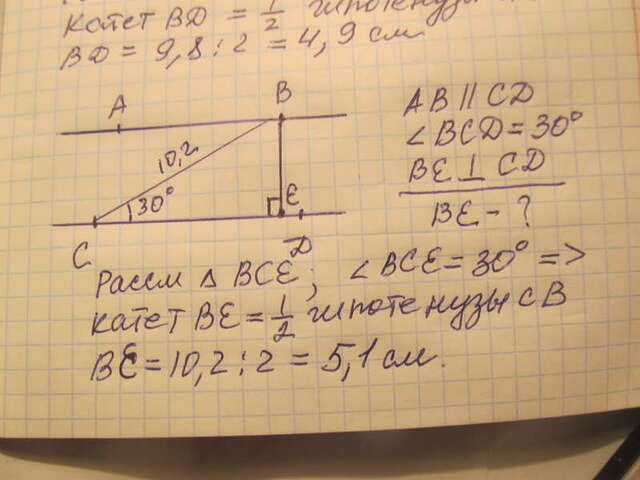 катет BD = 1/2 гипотенузы
BD = 9,8 : 2 = 4,9 см
A B
10,2
30°
E
C D
AB || CD
∠ BCD = 30°
BE ⊥ CD
BE - ?
Рассм △ BCE; ∠ BCE = 30° =>
катет BE = 1/2 гипотенузы CB
BE = 10,2 : 2 = 5,1 см.